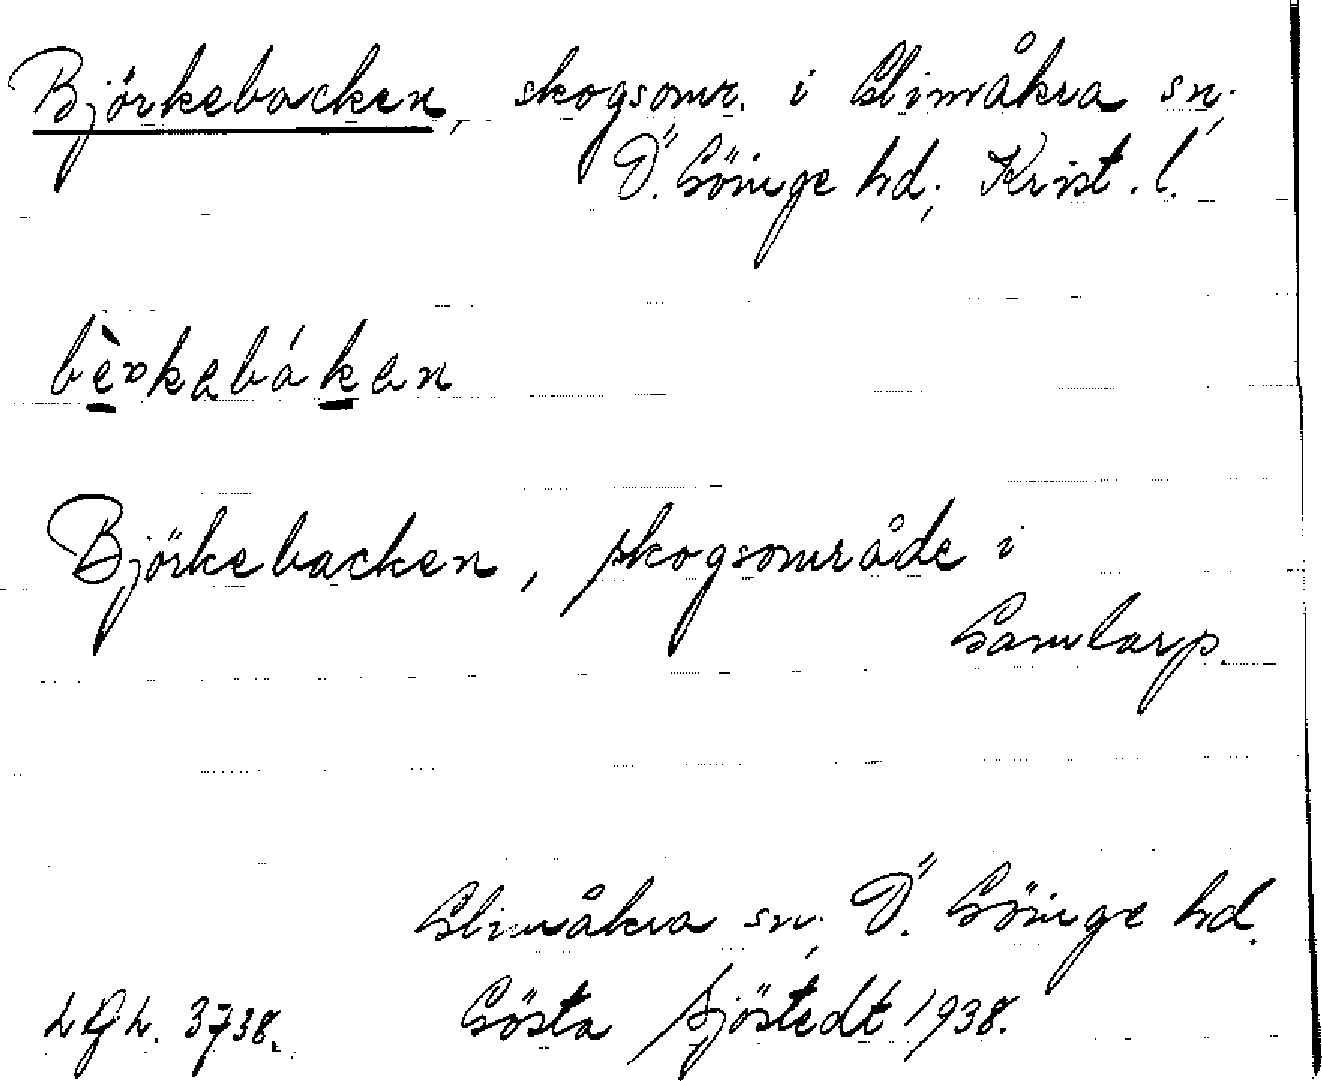 Björkebacken, skogsomr. i Glimåkra sn,
Ö. Göinge hd, Krist. l.
bèrkabákan
Björkebacken, skogsområde i
Gamlarp.
Glimåkra sn, Ö. Göinge hd.
LGL. 3738. Gösta Sjöstedt 1938.